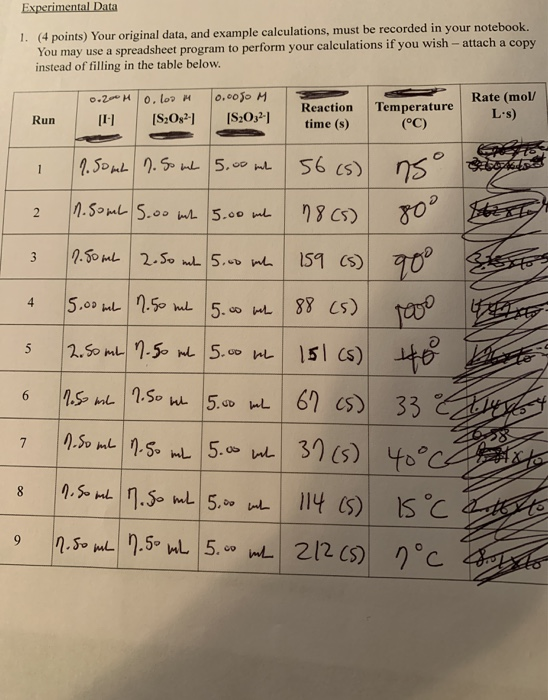 Experimental Data
1. (4 points) Your original data, and example calculations, must be recorded in your notebook.
You may use a spreadsheet program to perform your calculations if you wish – attach a copy
instead of filling in the table below.
0.200 M 0.100 M 0.0050 M
Run [I-] [S₂O₈²⁻] [S₂O₃²⁻] Reaction time (s) Temperature (°C) Rate (mol/L·s)
1 7.50mL 7.50 mL 5.00 mL 56 (s) 75°
2 7.50mL 5.00 mL 5.00 mL 78 (s) 80°
3 7.50mL 2.50 mL 5.00 mL 159 (s) 90°
4 5.00 mL 7.50 mL 5.00 mL 88 (s) 100°
5 2.50 mL 7.50 mL 5.00 mL 151 (s)
6 7.50 mL 7.50 mL 5.00 mL 67 (s) 33 °C
7 7.50 mL 7.50 mL 5.00 mL 37 (s) 40°C
8 7.50 mL 7.50 mL 5.00 mL 114 (s) 15 °C
9 7.50 mL 7.50 mL 5.00 mL 212 (s) 7°C